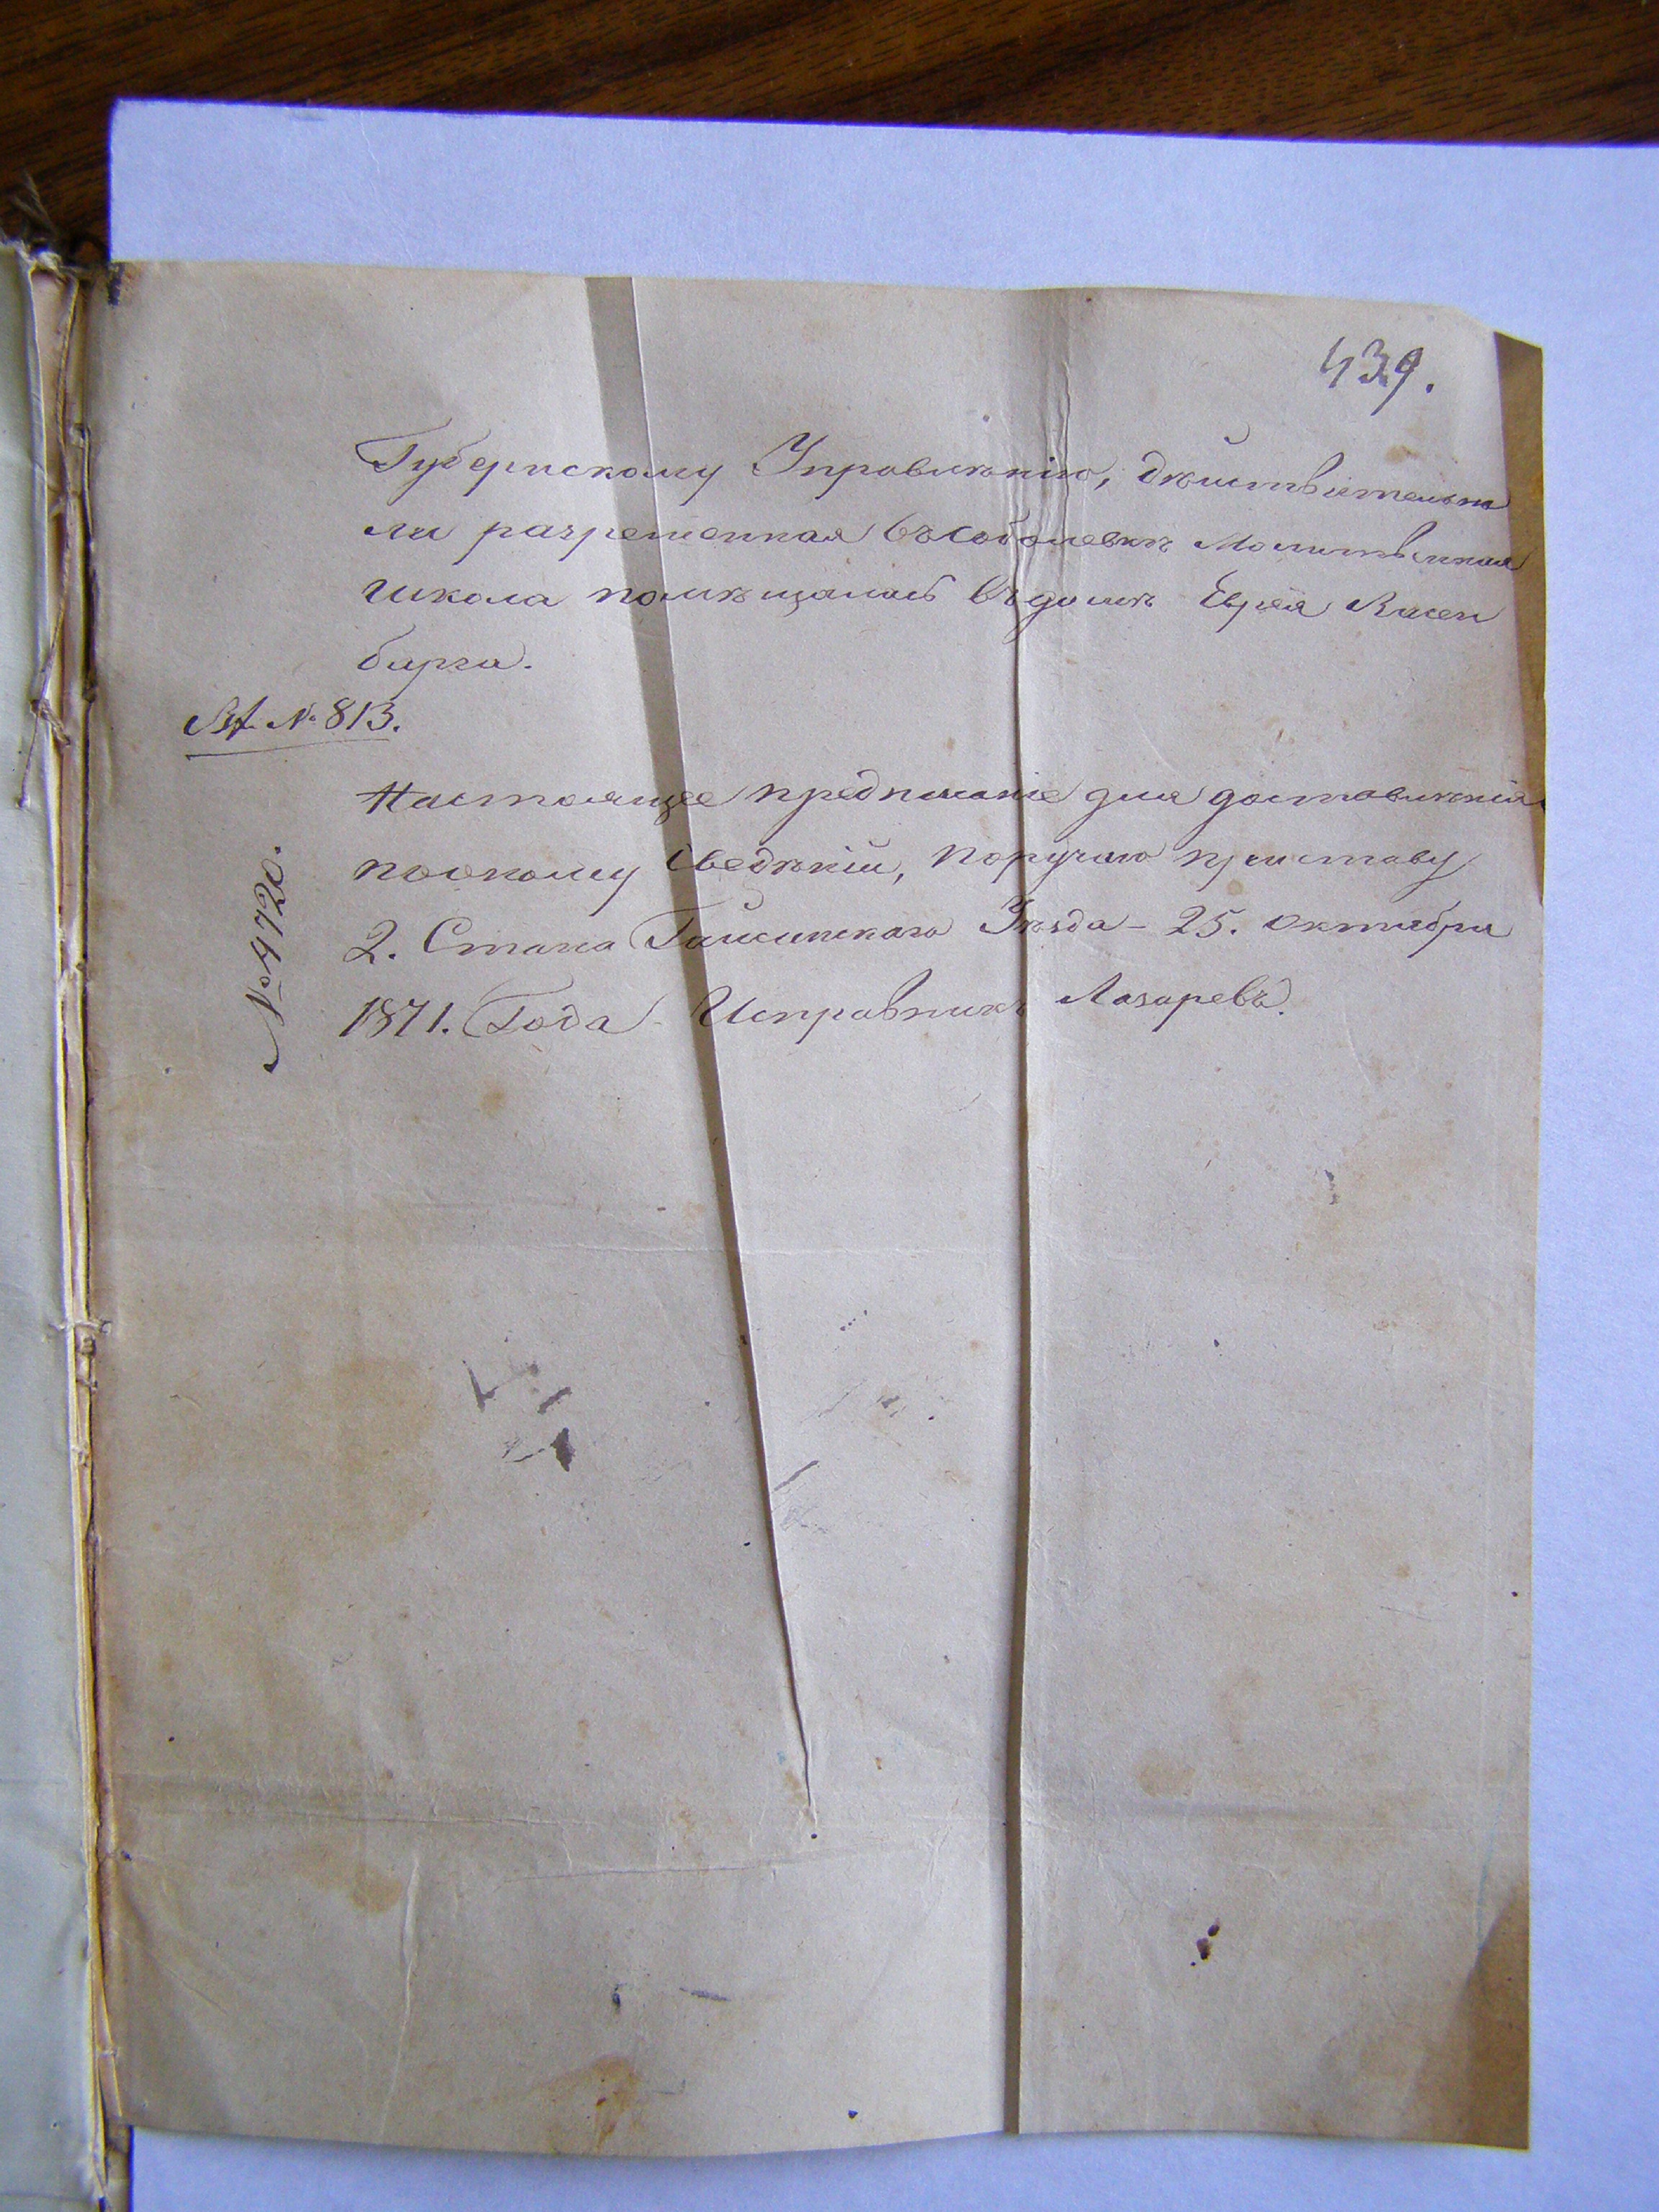 439.
Губернскому Управленію, дѣйствительно
ли разрешенная въ Соболевкѣ Молитвенная
школа помѣщалась въ домѣ Еврея Висен
бирга.
Вх. № 813.
Настоящее предписаніе для доставленія
пооному сведѣній, поручаю приставу
2. Стана Гайсинскаго Уѣзда - 25. октября
1871. Года - Исправникъ Лазаревъ.
№ 4720.